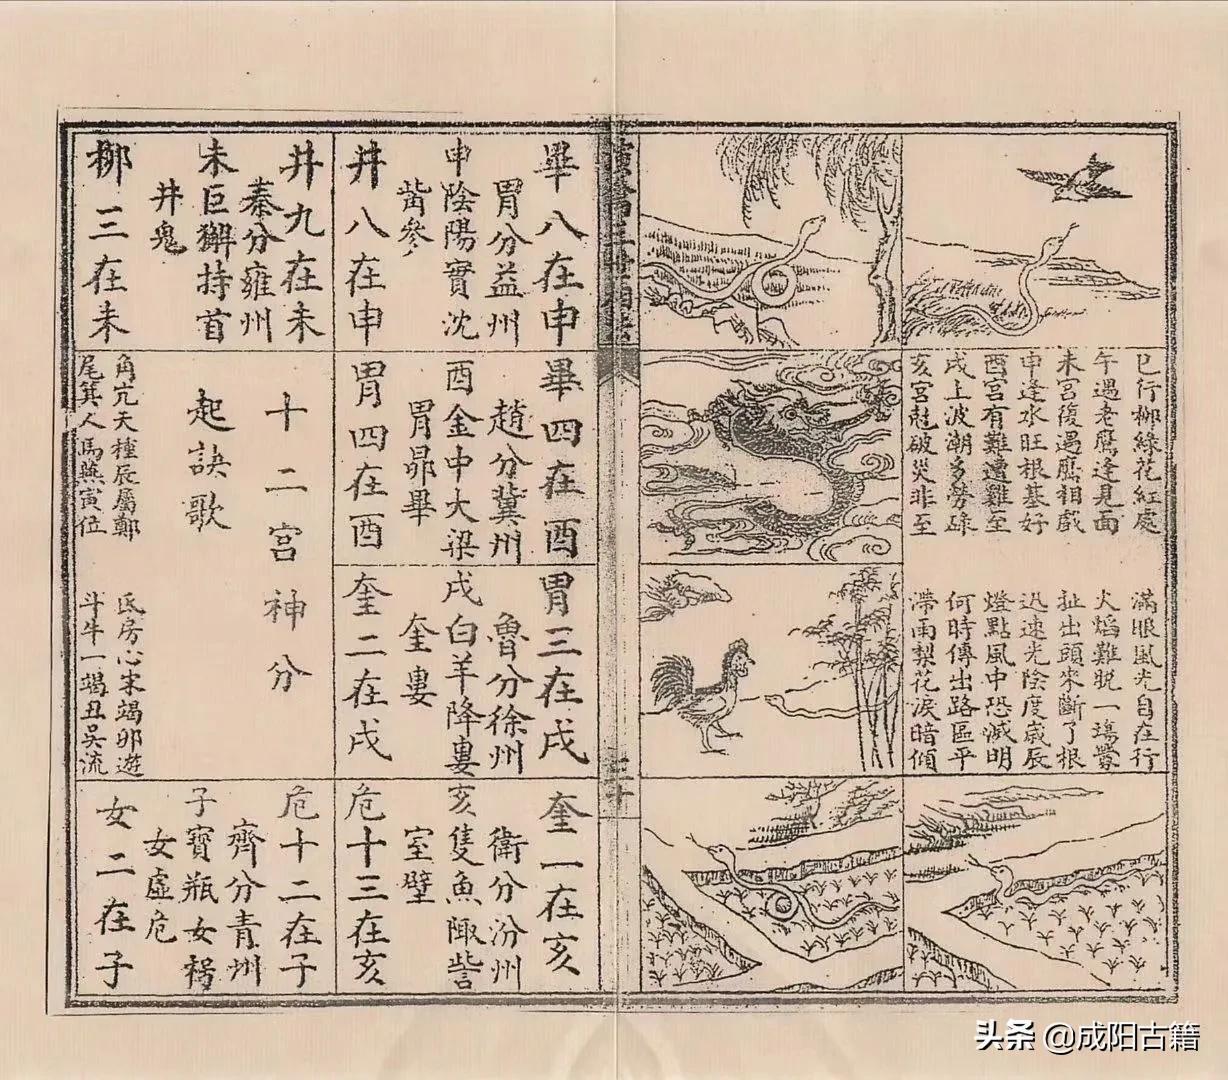 巳行柳綠花紅處
滿眼風光自在行
午遇老鷹逢見面
火焰難脫一塲驚
未宮復遇鷹相戲
扯出頭來斷了根
申逢水旺根基好
迅速光陰度歲辰
酉宮有難遭雞至
燈點風中恐滅明
戌上波潮多勞碌
何時傳出路區平
亥宮尅破災非至
滯雨梨花淚暗傾
二十
畢八在申
胃分益州
申陰陽實沈
觜參
井八在申
畢四在酉
趙分冀州
酉金中大梁
胃昴畢
胃四在酉
胃三在戌
魯分徐州
戌白羊降婁
奎婁
奎二在戌
奎一在亥
衛分汾州
亥雙魚陬訾
室壁
危十三在亥
井九在未
秦分雍州
未巨獬持首
井鬼
柳三在未
十二宮神分
起訣歌
角亢天種辰屬鄭
氐房心宋竭卯遊
尾箕人馬燕寅位
斗牛一竭丑吳流
危十二在子
齊分青州
子寶瓶女禍
女虛危
女二在子
头条 @成阳古籍